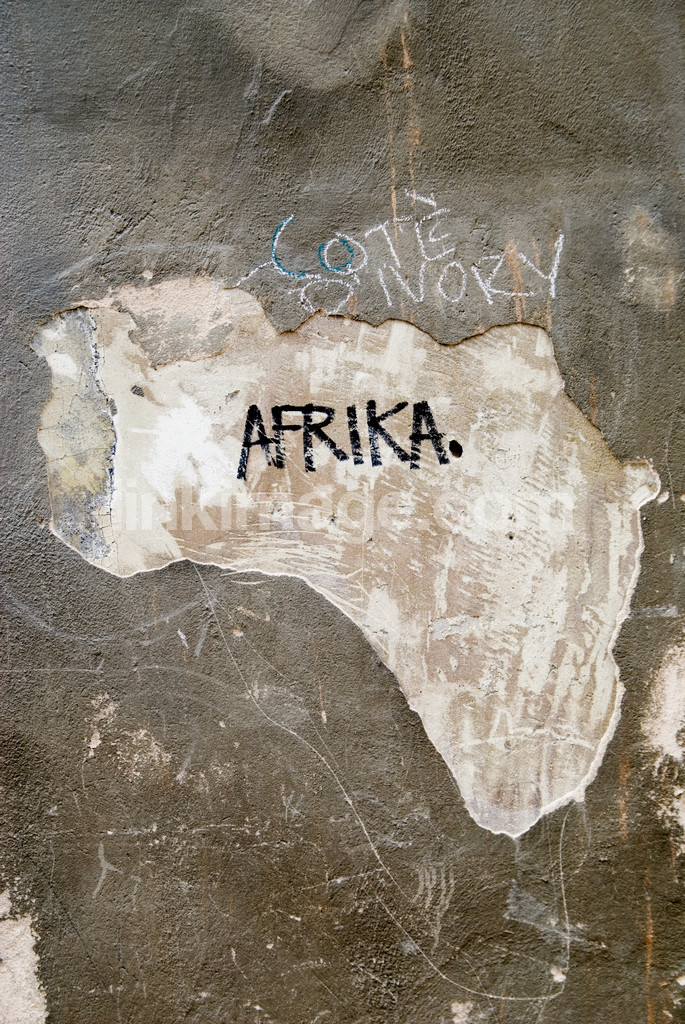 COTÈ
D'IVORY
AFRIKA.
inkimage.com